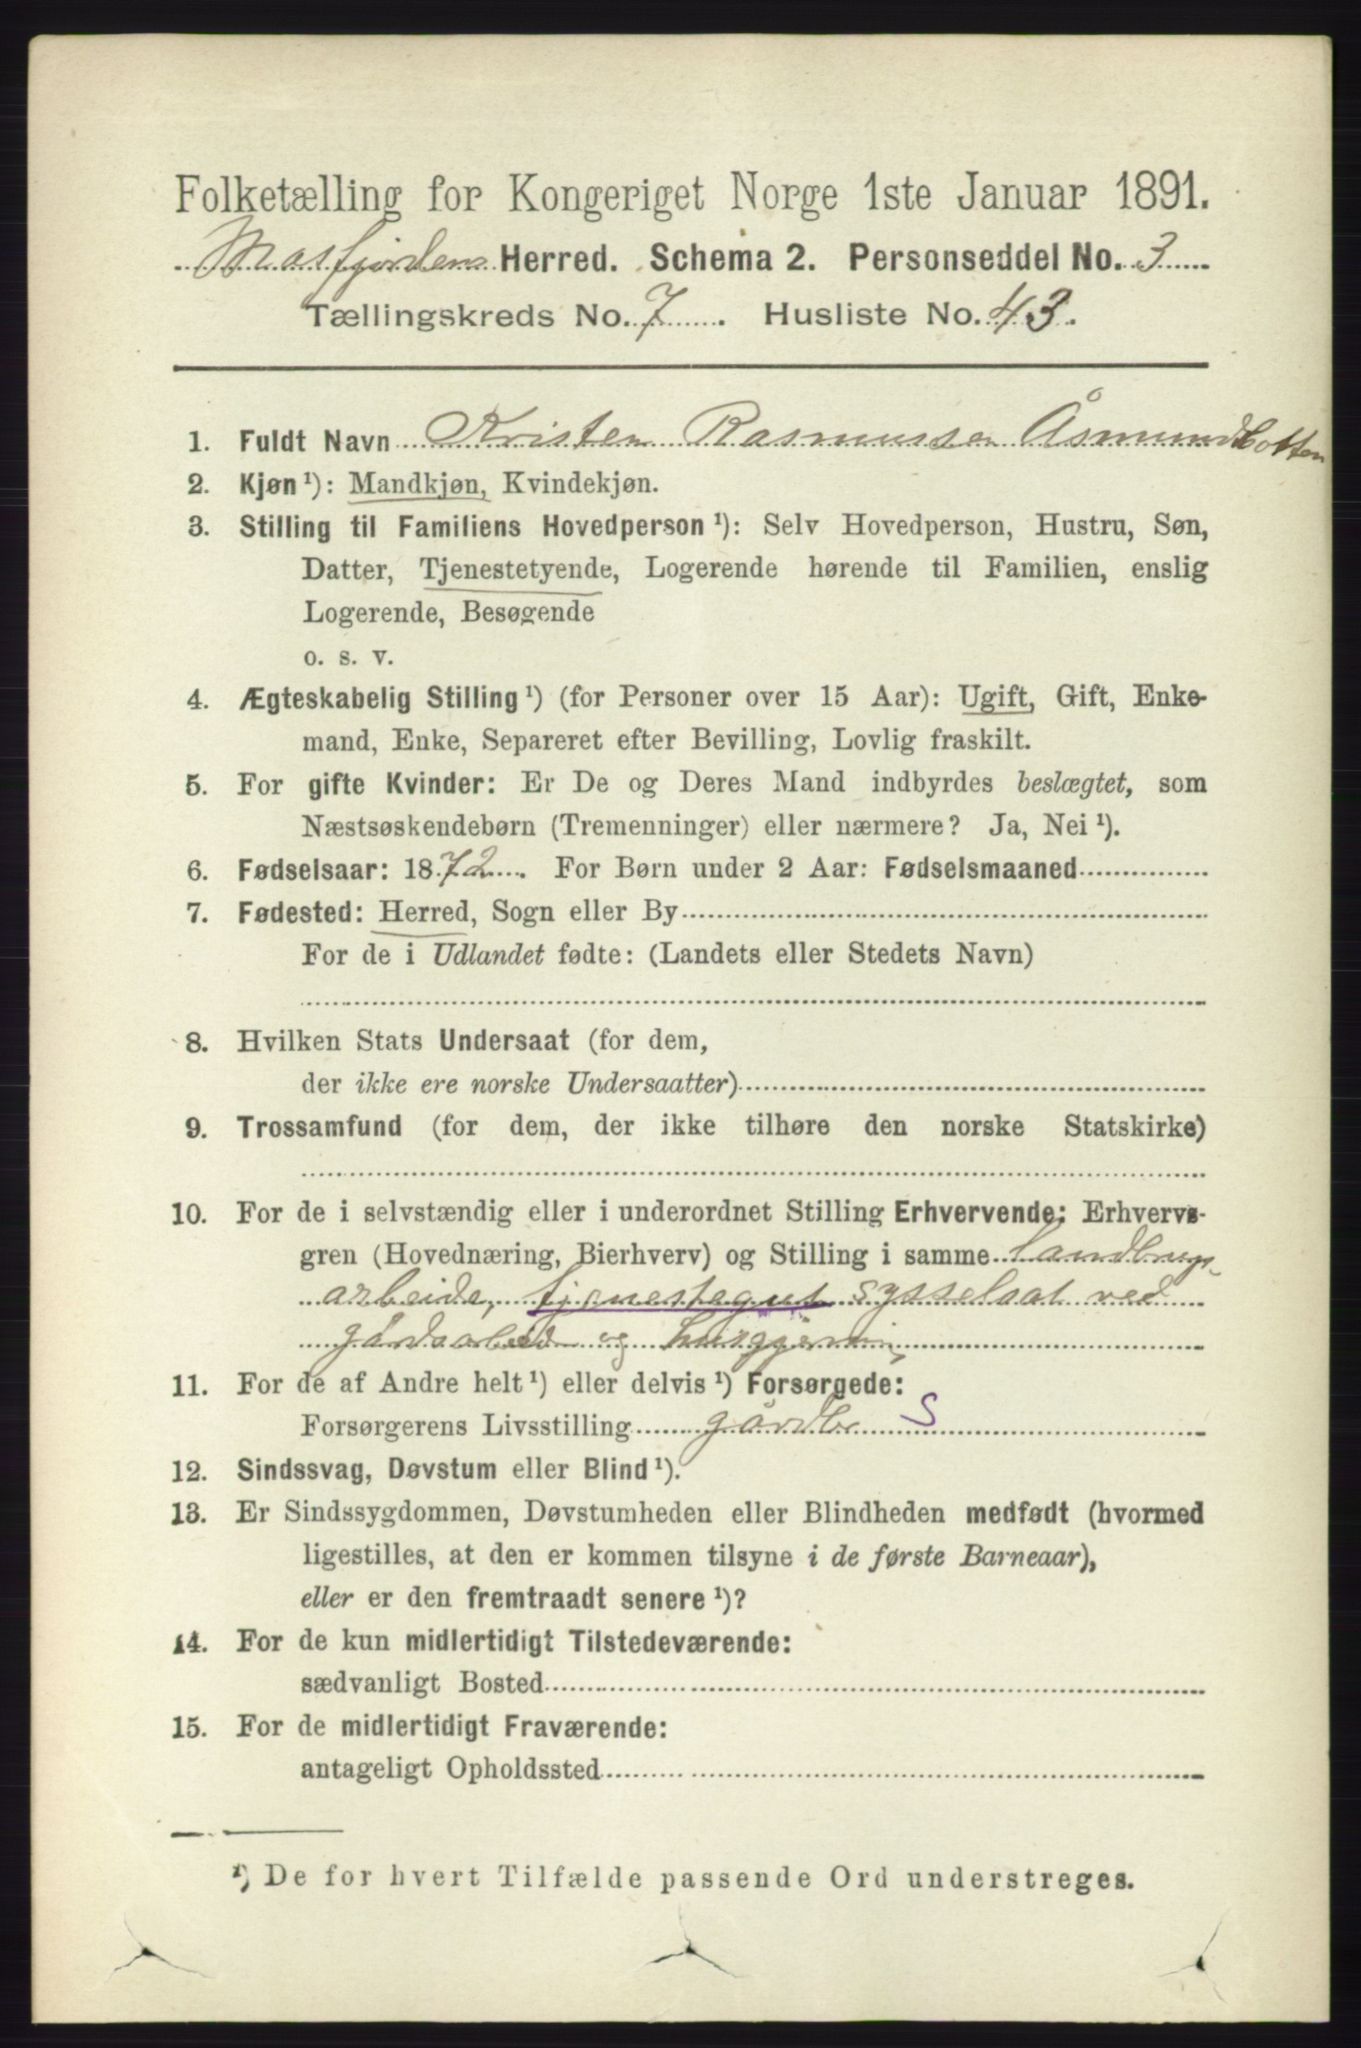 Folketælling for Kongeriget Norge 1ste Januar 1891.
Masfjorden Herred. Schema 2. Personseddel No. 3
Tællingskreds No. 7. Husliste No. 43.
1. Fuldt Navn Kristen Rasmussen Åsmundbotten
2. Kjøn ¹): Mandkjøn, Kvindekjøn.
3. Stilling til Familiens Hovedperson ¹): Selv Hovedperson, Hustru, Søn,
Datter, Tjenestetyende, Logerende hørende til Familien, enslig
Logerende, Besøgende
o. s. v.
4. Ægteskabelig Stilling ¹) (for Personer over 15 Aar): Ugift, Gift, Enke-
mand, Enke, Separeret efter Bevilling, Lovlig fraskilt.
5. For gifte Kvinder: Er De og Deres Mand indbyrdes beslægtet, som
Næstsøskendebørn (Tremenninger) eller nærmere? Ja, Nei ¹).
6. Fødselsaar: 1872. For Børn under 2 Aar: Fødselsmaaned
7. Fødested: Herred, Sogn eller By
For de i Udlandet fødte: (Landets eller Stedets Navn)
8. Hvilken Stats Undersaat (for dem,
der ikke ere norske Undersaatter)
9. Trossamfund (for dem, der ikke tilhøre den norske Statskirke)
10. For de i selvstændig eller i underordnet Stilling Erhvervende: Erhvervs-
gren (Hovednæring, Bierhverv) og Stilling i samme landbrugs-
arbeide, tjenestegut sysselsat ved
gårdsarbeid og husgjerning
11. For de af Andre helt ¹) eller delvis ¹) Forsørgede:
Forsørgerens Livsstilling gårdbr S
12. Sindssvag, Døvstum eller Blind ¹).
13. Er Sindssygdommen, Døvstumheden eller Blindheden medfødt (hvormed
ligestilles, at den er kommen tilsyne i de første Barneaar),
eller er den fremtraadt senere ¹)?
14. For de kun midlertidigt Tilstedeværende:
sædvanligt Bosted
15. For de midlertidigt Fraværende:
antageligt Opholdssted
¹) De for hvert Tilfælde passende Ord understreges.